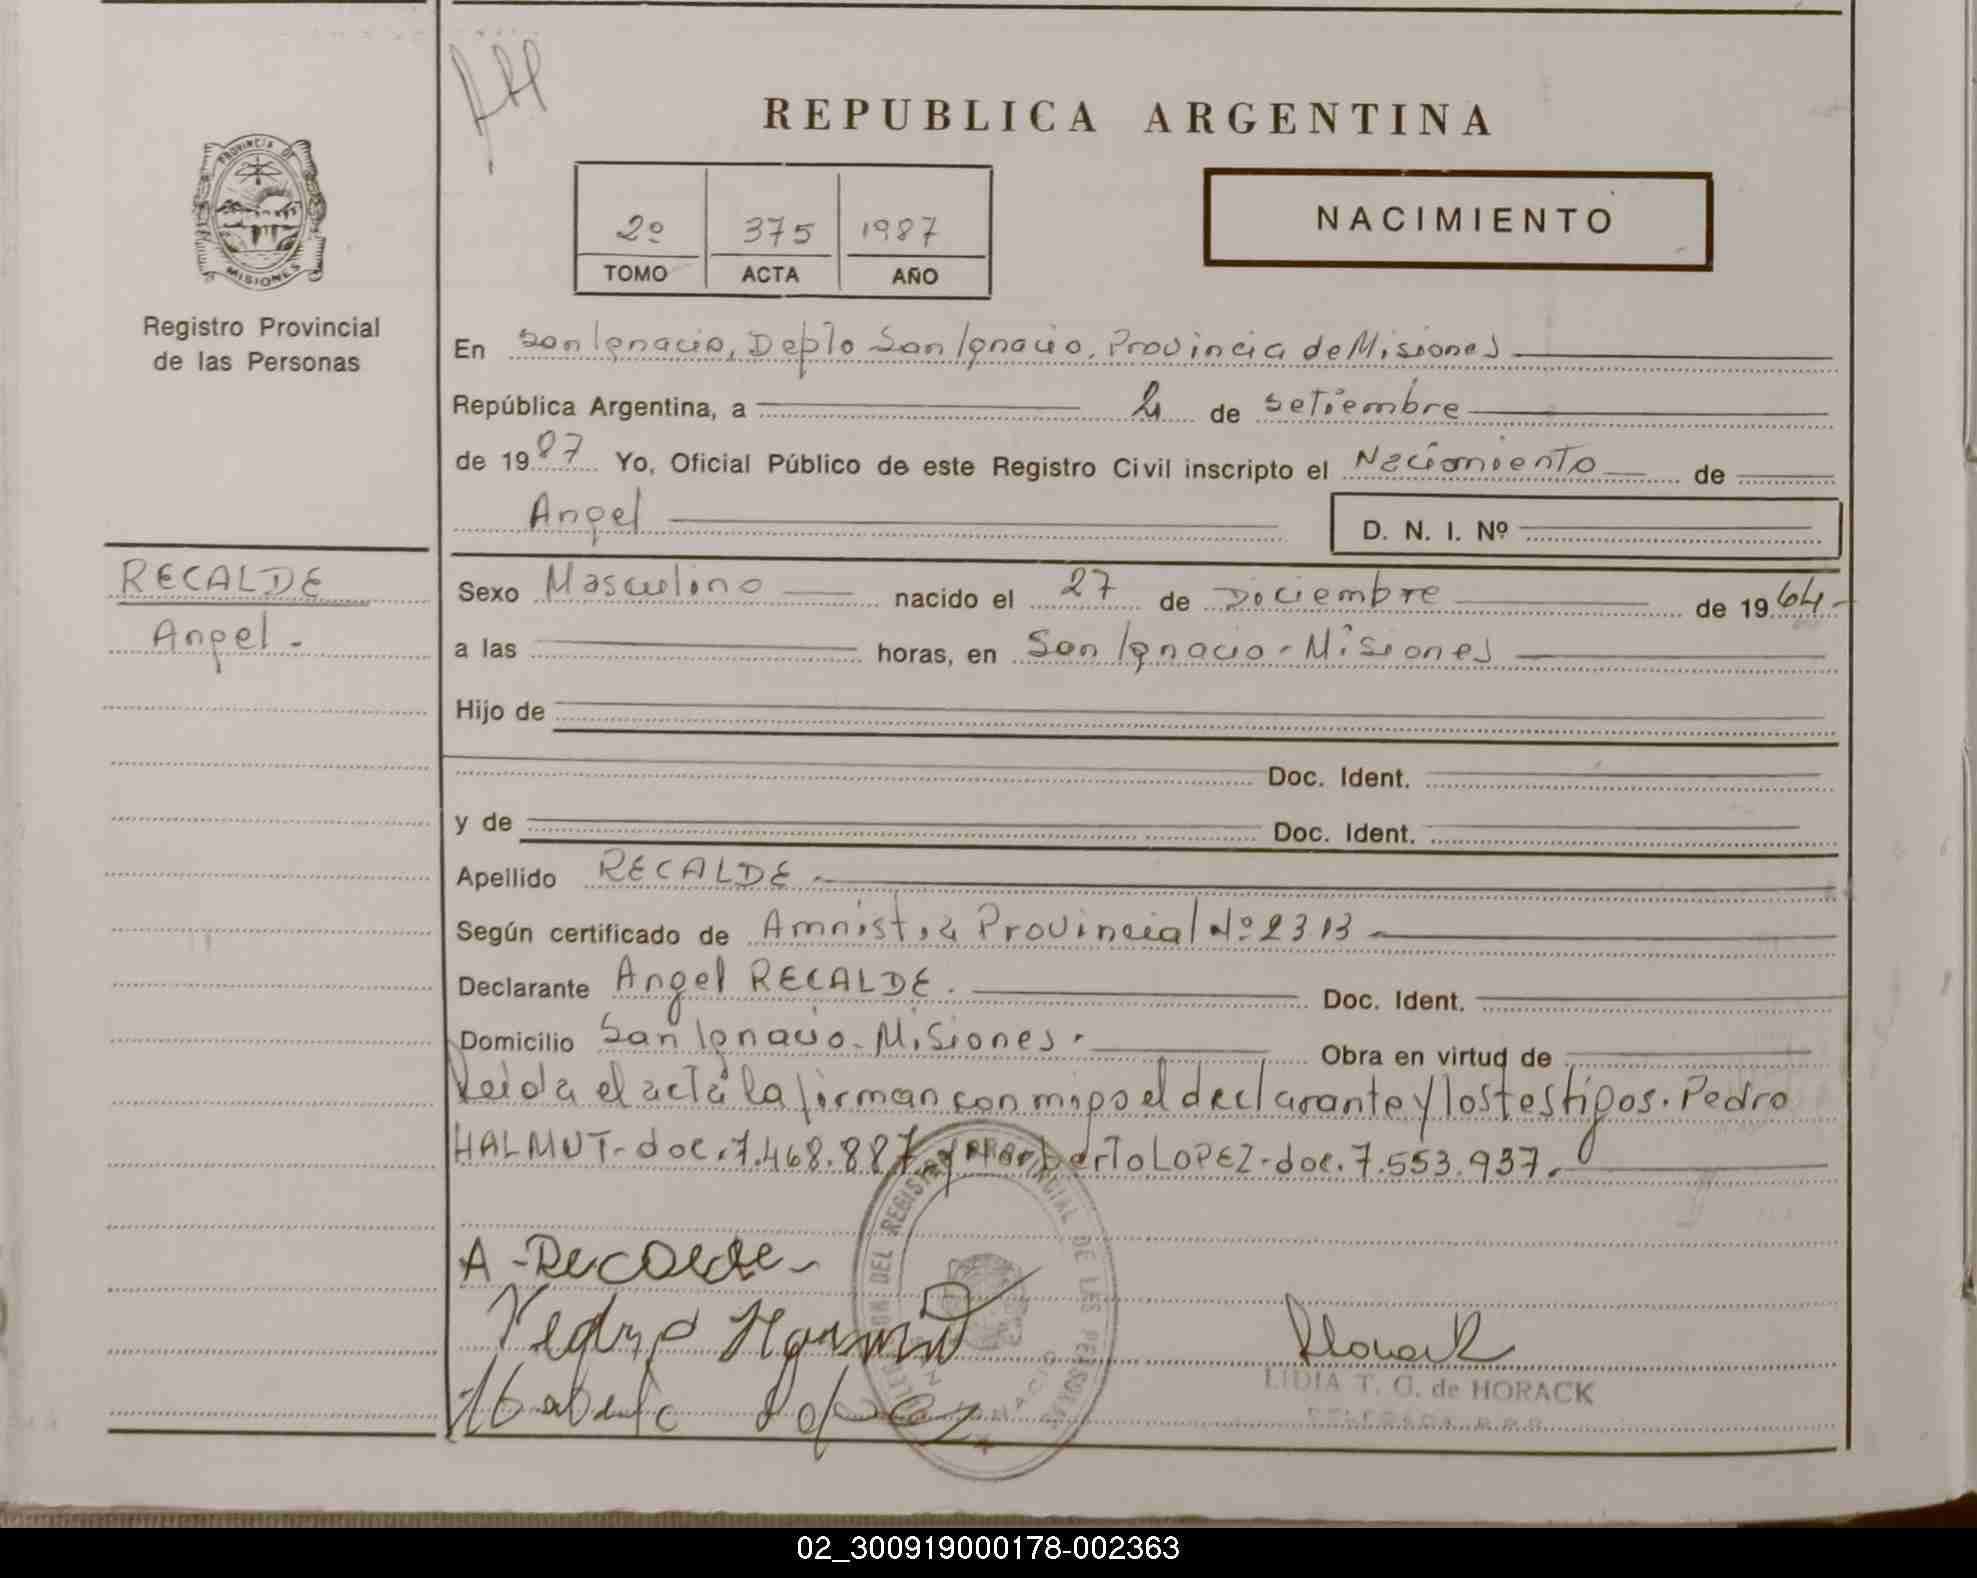 REPUBLICA ARGENTINA
PROVINCIA DE
MISIONES
Registro Provincial
de las Personas
2º 375 1987
TOMO ACTA AÑO
NACIMIENTO
En San Ignacio, Depto San Ignacio, Provincia de Misiones
República Argentina, a de Setiembre
de 1987 Yo, Oficial Público de este Registro Civil inscripto el Nacimiento de
Angel D. N. I. Nº
RECALDE
Angel.-
Sexo Masculino nacido el 27 de Diciembre de 1964.-
a las horas, en San Ignacio - Misiones
Hijo de
Doc. Ident.
y de Doc. Ident.
Apellido RECALDE.-
Según certificado de Amnistia Provincial Nº 2313.-
Declarante Angel RECALDE. Doc. Ident.
Domicilio San Ignacio - Misiones.- Obra en virtud de
Leida el acta la firman conmigo el declarante y los testigos. Pedro
HALMUT - doc. 7.468.887 y Norberto LOPEZ - doc. 7.553.937.-
DEL REGISTRO PROVINCIAL DE LAS PERSONAS
A - Recalde -
Pedro
Horack
LIDIA T. G. de HORACK
02_300919000178-002363